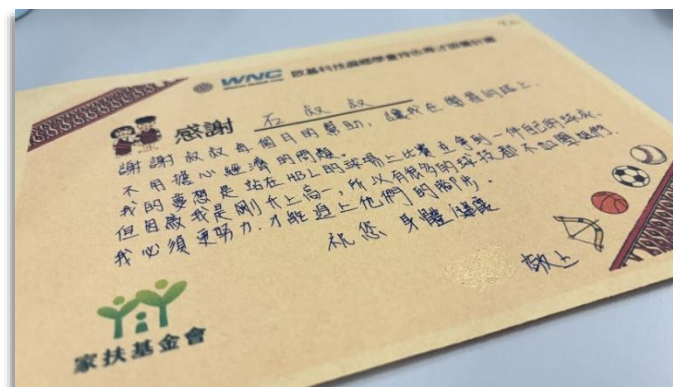 WNC 啟基科技
感謝 石叔叔
謝謝叔叔每個月的幫助，讓我在團昇的路上，
不用擔心經濟的問題。
我的夢想是站在HBL的球場上比賽並拿到一件自己的球衣，
但目前我是剛升上高一，所以有很多的球技都不如學姐們，
我必須更努力，才能追上他們的腳步。
祝您 身體健康
敬上
家扶基金會